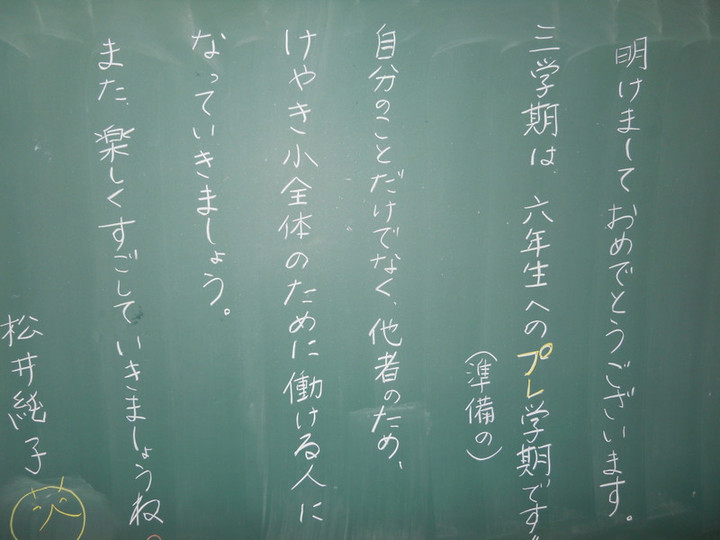 明けまして おめでとうございます。
三学期は、六年生へのプレ学期です
(準備の)
自分のことだけでなく、他者のため、
けやき小全体のために働ける人に
なっていきましょう。
また、楽しくすごしていきましょうね。
松井純子